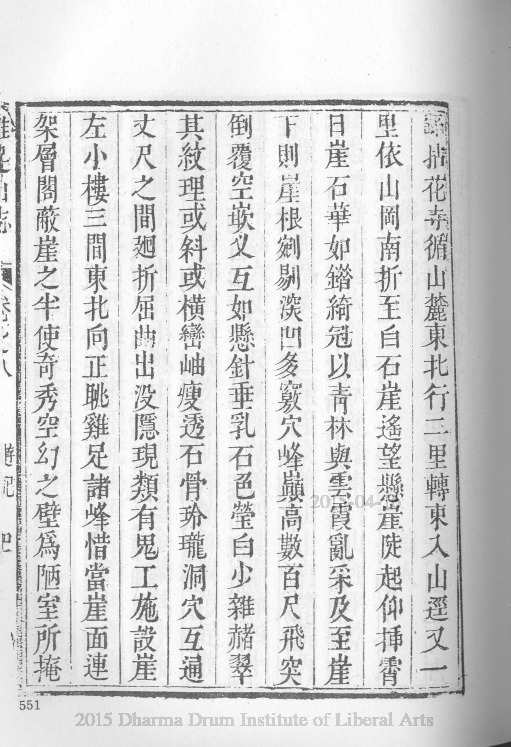 拈花寺循山麓東北行二里轉東入山逕又一
里依山岡南折至白石崖遙望懸崖陡起仰插霄
日崖石華如錯綺冠以青林與雲霞亂采及至崖
下則崖根剜剔深凹多竅穴峰巔高數百尺飛突
倒覆空嵌义互如懸針垂乳石色瑩白少雜赭翠
其紋理或斜或橫巒岫瘦透石骨玲瓏洞穴互通
丈尺之間廻折屈曲出没隱現類有鬼工施設崖
左小樓三間東北向正眺雞足諸峰惜當崖面連
架層閣蔽崖之半使奇秀空幻之壁爲陋室所掩
雞足山志 卷之八 遊記
551
2015 Dharma Drum Institute of Liberal Arts